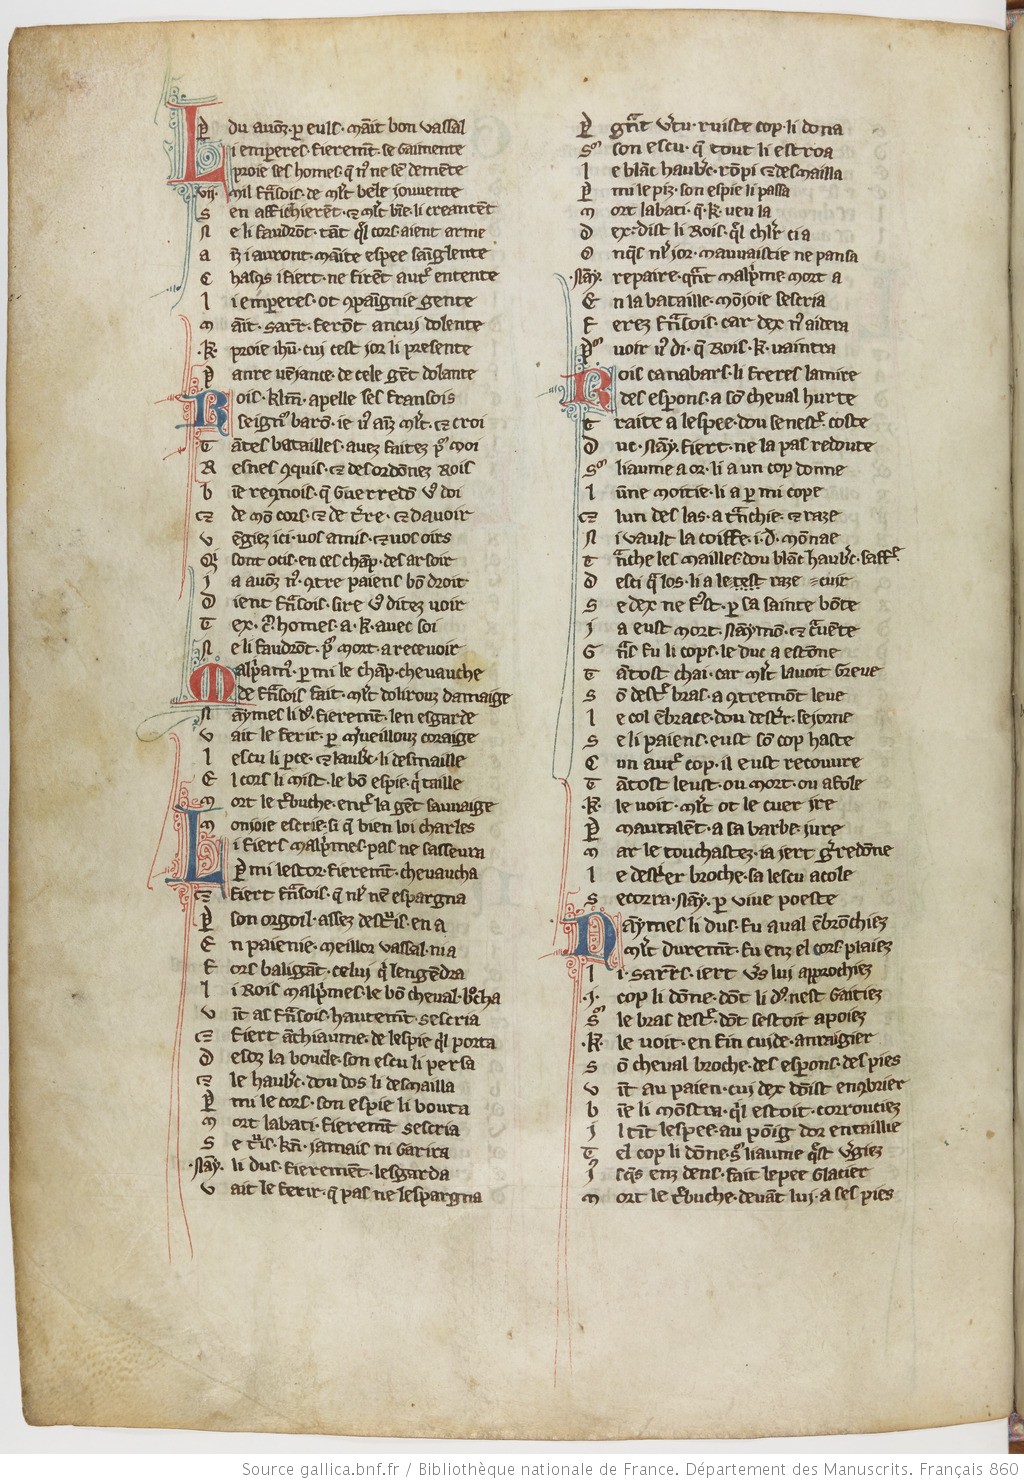 P du auōz· ꝑ euls· maīt bon vassal
L i emperes· fierem̄t· se gaimente
P roie ses homes· q̄ nͥ ne sē demēte
·vij· mil frāsois· de ml̄t bele jouuente
S en affichierēt· ⁊ ml̄t bn̄e· li creantēt
N e li faudrōt· tāt q̄l cors aient arme
A īz i auront· maīte espee sāglente
C hasqs i fiert· ne firēt autͬ entente
L i emperes· ot ꝯpaīgnie gente
M aīt· sarr̄· ferōt ancui dolente
·K· proie ihū· cui cest jor li presente
P anre vēiance· de cele gēt dolante
R ois· kl̄m· apelle ses fransois
S eignͬ barō· ie vͦ aīz ml̄t· ⁊ croi
T antes batailles· auez faitez pͬ moi
R esnes ꝯquis· ⁊ desordōnez rois
B n̄e reqnois· q̄ guerredō vͦ doi
⁊ de mō cors· ⁊ de tr̄re· ⁊ dauoir
V ēgiez ici· vos amis· ⁊ uos oirs
Qͥ sont ocis· en ces chāp· des arsoir
J a auōz nͦ· ꝯtre paiens bō droit
D ient frāsois· sire vͦ ditez voir
T ex· cͫ· homes· a· k̄· auec soi
N e li faudrōt· pͬ mort· a receuoir
M alpͥamͬ· ꝑ mi le chāp· cheuauche
de frāsois fait· ml̄t dolirouz damaige
N aymes li dͦ· fierem̄t· len esgarde
V ait le ferir· ꝑ mͥueillouz coraige
L escu li ꝑce· ⁊ laub̄c· li desmaille
E l cors li mist· le bō espie· qͥ taille
M ort le tͬbuche· entͬ la gēt sauuaige
M onioie escrie· si q̄ bien loi charles
L i fiers malpͥmes· pas ne sasseura
P mi lestor· fierem̄t· cheuaucha
⁊ fiert frāsois· q̄ nͥ nē espargna
P son orgoil· assez destͬis· en a
E n paienie· meillor vassal· nia
F ors baligāt· celui qͥ lengēdra
L i rois malpͥmes· le bō cheual· bͬcha
V īt as frāsois· hautem̄t· sescria
⁊ fiert āthiaume· de lespie q̄l porta
D esoz la boucle· son escu li persa
⁊ le haub̄c· dou dos li desmailla
P mi le cors· son espie li bouta
M ort labati· fierem̄t sescria
S e tͬis· kn̄· jamais ni garira
·Nay̅· li dus· fierem̄et· lesgarda
V ait le ferir· q̄ pas ne lespargna
P gr̄āt vͬtu· ruiste cop· li dona
Sͬ son escu· q̄ tout li estroa
L e blāc haub̄c· rōpi ⁊ desmailla
P mi le piz· son espie li passa
M ort labati· q̄· k̄· veu la
D ex· dist li rois· q̄l chl̄r ci a
O nq̄s nͬ jor· mauuaistie ne pansa
·Nay̅· repaire· qn̄t malpͥme mort a
E n la bataille· mōioie sescria
F erez frāsois· car dex nͦ aidera
Pͬ voir vͦ di· q̄ rois· k̄· vaintra
R ois canabars· li freres lamire
des esp̄ons· a sō cheual hurte
T raite a lespee· dou senestͬ· coste
D uc· Nay̅· fiert· ne la pas redoute
Sͬ liaume a or· li a un cop donne
L ūne moitie· li a ꝑ mi cope
⁊ lun des las· a trāchie· ⁊ raze
N i vault la coiffe· i· d̄· mōnae
T rāche les mailles· dou blāc haub̄c· saffͬe
D esci q̄ los· li a le test raze
S e dex ne fͬst· ꝑ sa sainte bōte
J a eust mort· Naymō· ⁊ crͣuēte
G rn̄s fu li cops· le duc a estōne
T ātost chai· car ml̄t lauoit greue
S ō destͬ bras· a ꝯtremōt leue
L e col ēbrace· dou destr̄r· sejorne
S e li paiens· eust sō cop haste
C un autͬ cop· il eust recouure
T ātost leust· ou mort· ou afole
·K· le voit· ml̄t ot le cuer jre
P mautalēt· a sa barbe jure
M ar le touchastez· ia jert gͬredōne
L e destr̄er broche· sa lescu acole
S ecorra· Nay̅· ꝑ viue poeste
N aymes li dus· fu aual ēbrōchiez
ml̄t durem̄t· fu enz el cors plaiez
L i· sarr̄s· iert vͬs lui approchiez
·J· cop li dōne· dōt li dͦ· nest gaitiez
Sͬ le bras destͬ· dōt sestoit apoiez
·K· le voit· en fin cuide· anraigier
S ō cheual broche· des esp̄ons· des pies
V īt au paien· cui dex dōist enꝯbrier
B n̄e li mōstra· q̄l estoit· corrouciez
J l tīt lespee· au pōig dor entaillie
T el cop li dōne· sͬ liaume qͣst vͬgiez
J sq̄s enz dens· fait lepee glacier
M ort le tͬbuche· deuāt lui· a ses pies
Source gallica.bnf.fr / Bibliothèque nationale de France. Département des Manuscrits. Français 860